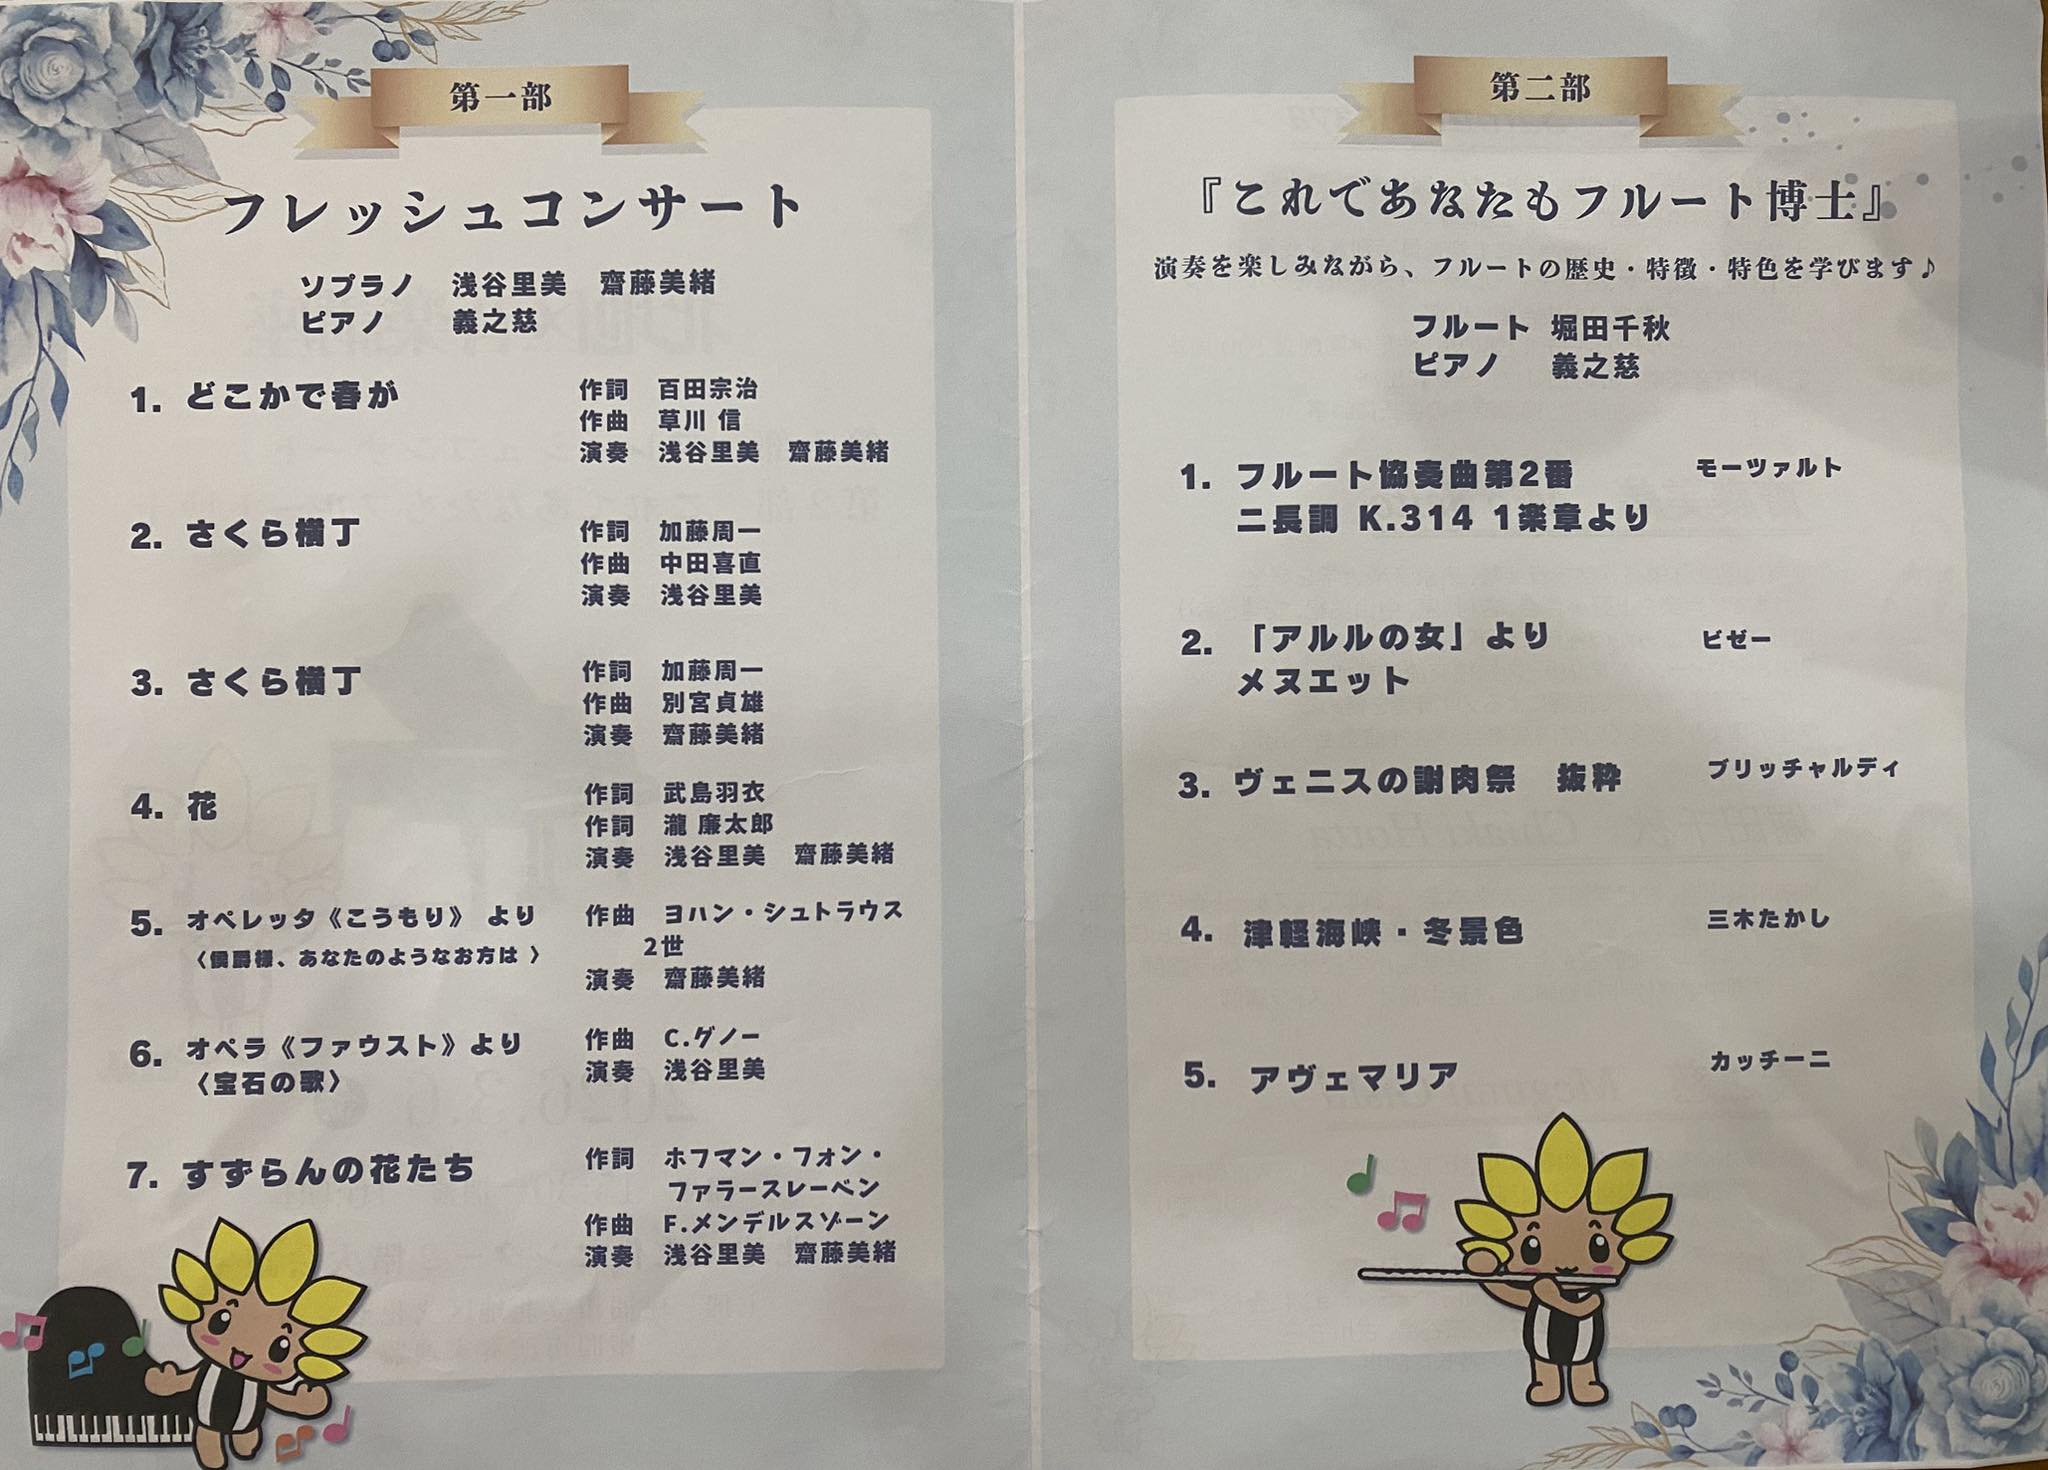 第一部
フレッシュコンサート
ソプラノ 浅谷里美 齋藤美緒
ピアノ 義之慈
1. どこかで春が
作詞 百田宗治
作曲 草川 信
演奏 浅谷里美 齋藤美緒
2. さくら横丁
作詞 加藤周一
作曲 中田喜直
演奏 浅谷里美
3. さくら横丁
作詞 加藤周一
作曲 別宮貞雄
演奏 齋藤美緒
4. 花
作詞 武島羽衣
作詞 瀧 廉太郎
演奏 浅谷里美 齋藤美緒
5. オペレッタ《こうもり》 より
〈侯爵様、あなたのようなお方は 〉
作曲 ヨハン・シュトラウス
2世
演奏 齋藤美緒
6. オペラ《ファウスト》より
〈宝石の歌〉
作曲 C.グノー
演奏 浅谷里美
7. すずらんの花たち
作詞 ホフマン・フォン・
ファラースレーベン
作曲 F.メンデルスゾーン
演奏 浅谷里美 齋藤美緒
第二部
『これであなたもフルート博士』
演奏を楽しみながら、フルートの歴史・特徴・特色を学びます♪
フルート 堀田千秋
ピアノ 義之慈
1. フルート協奏曲第2番 モーツァルト
ニ長調 K.314 1楽章より
2. 「アルルの女」より ビゼー
メヌエット
3. ヴェニスの謝肉祭 抜粋 ブリッチャルディ
4. 津軽海峡・冬景色 三木たかし
5. アヴェマリア カッチーニ